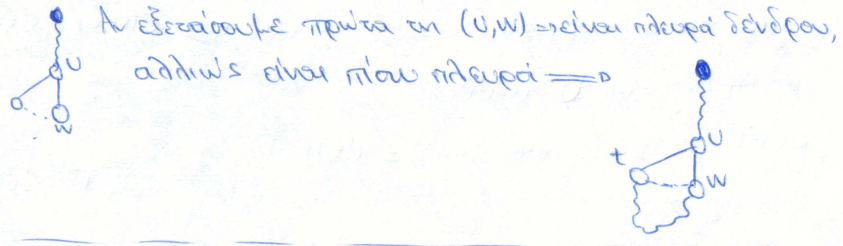 Αν εξετάσουμε πρώτα την (U,W) => είναι πλευρά δένδρου,
αλλιώς είναι πίσω πλευρά =>
U
W
U
t
W